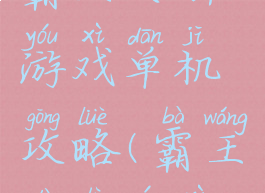 yóu xì dān jī
游戏单机
gōng lüè bà wáng
攻略(霸王